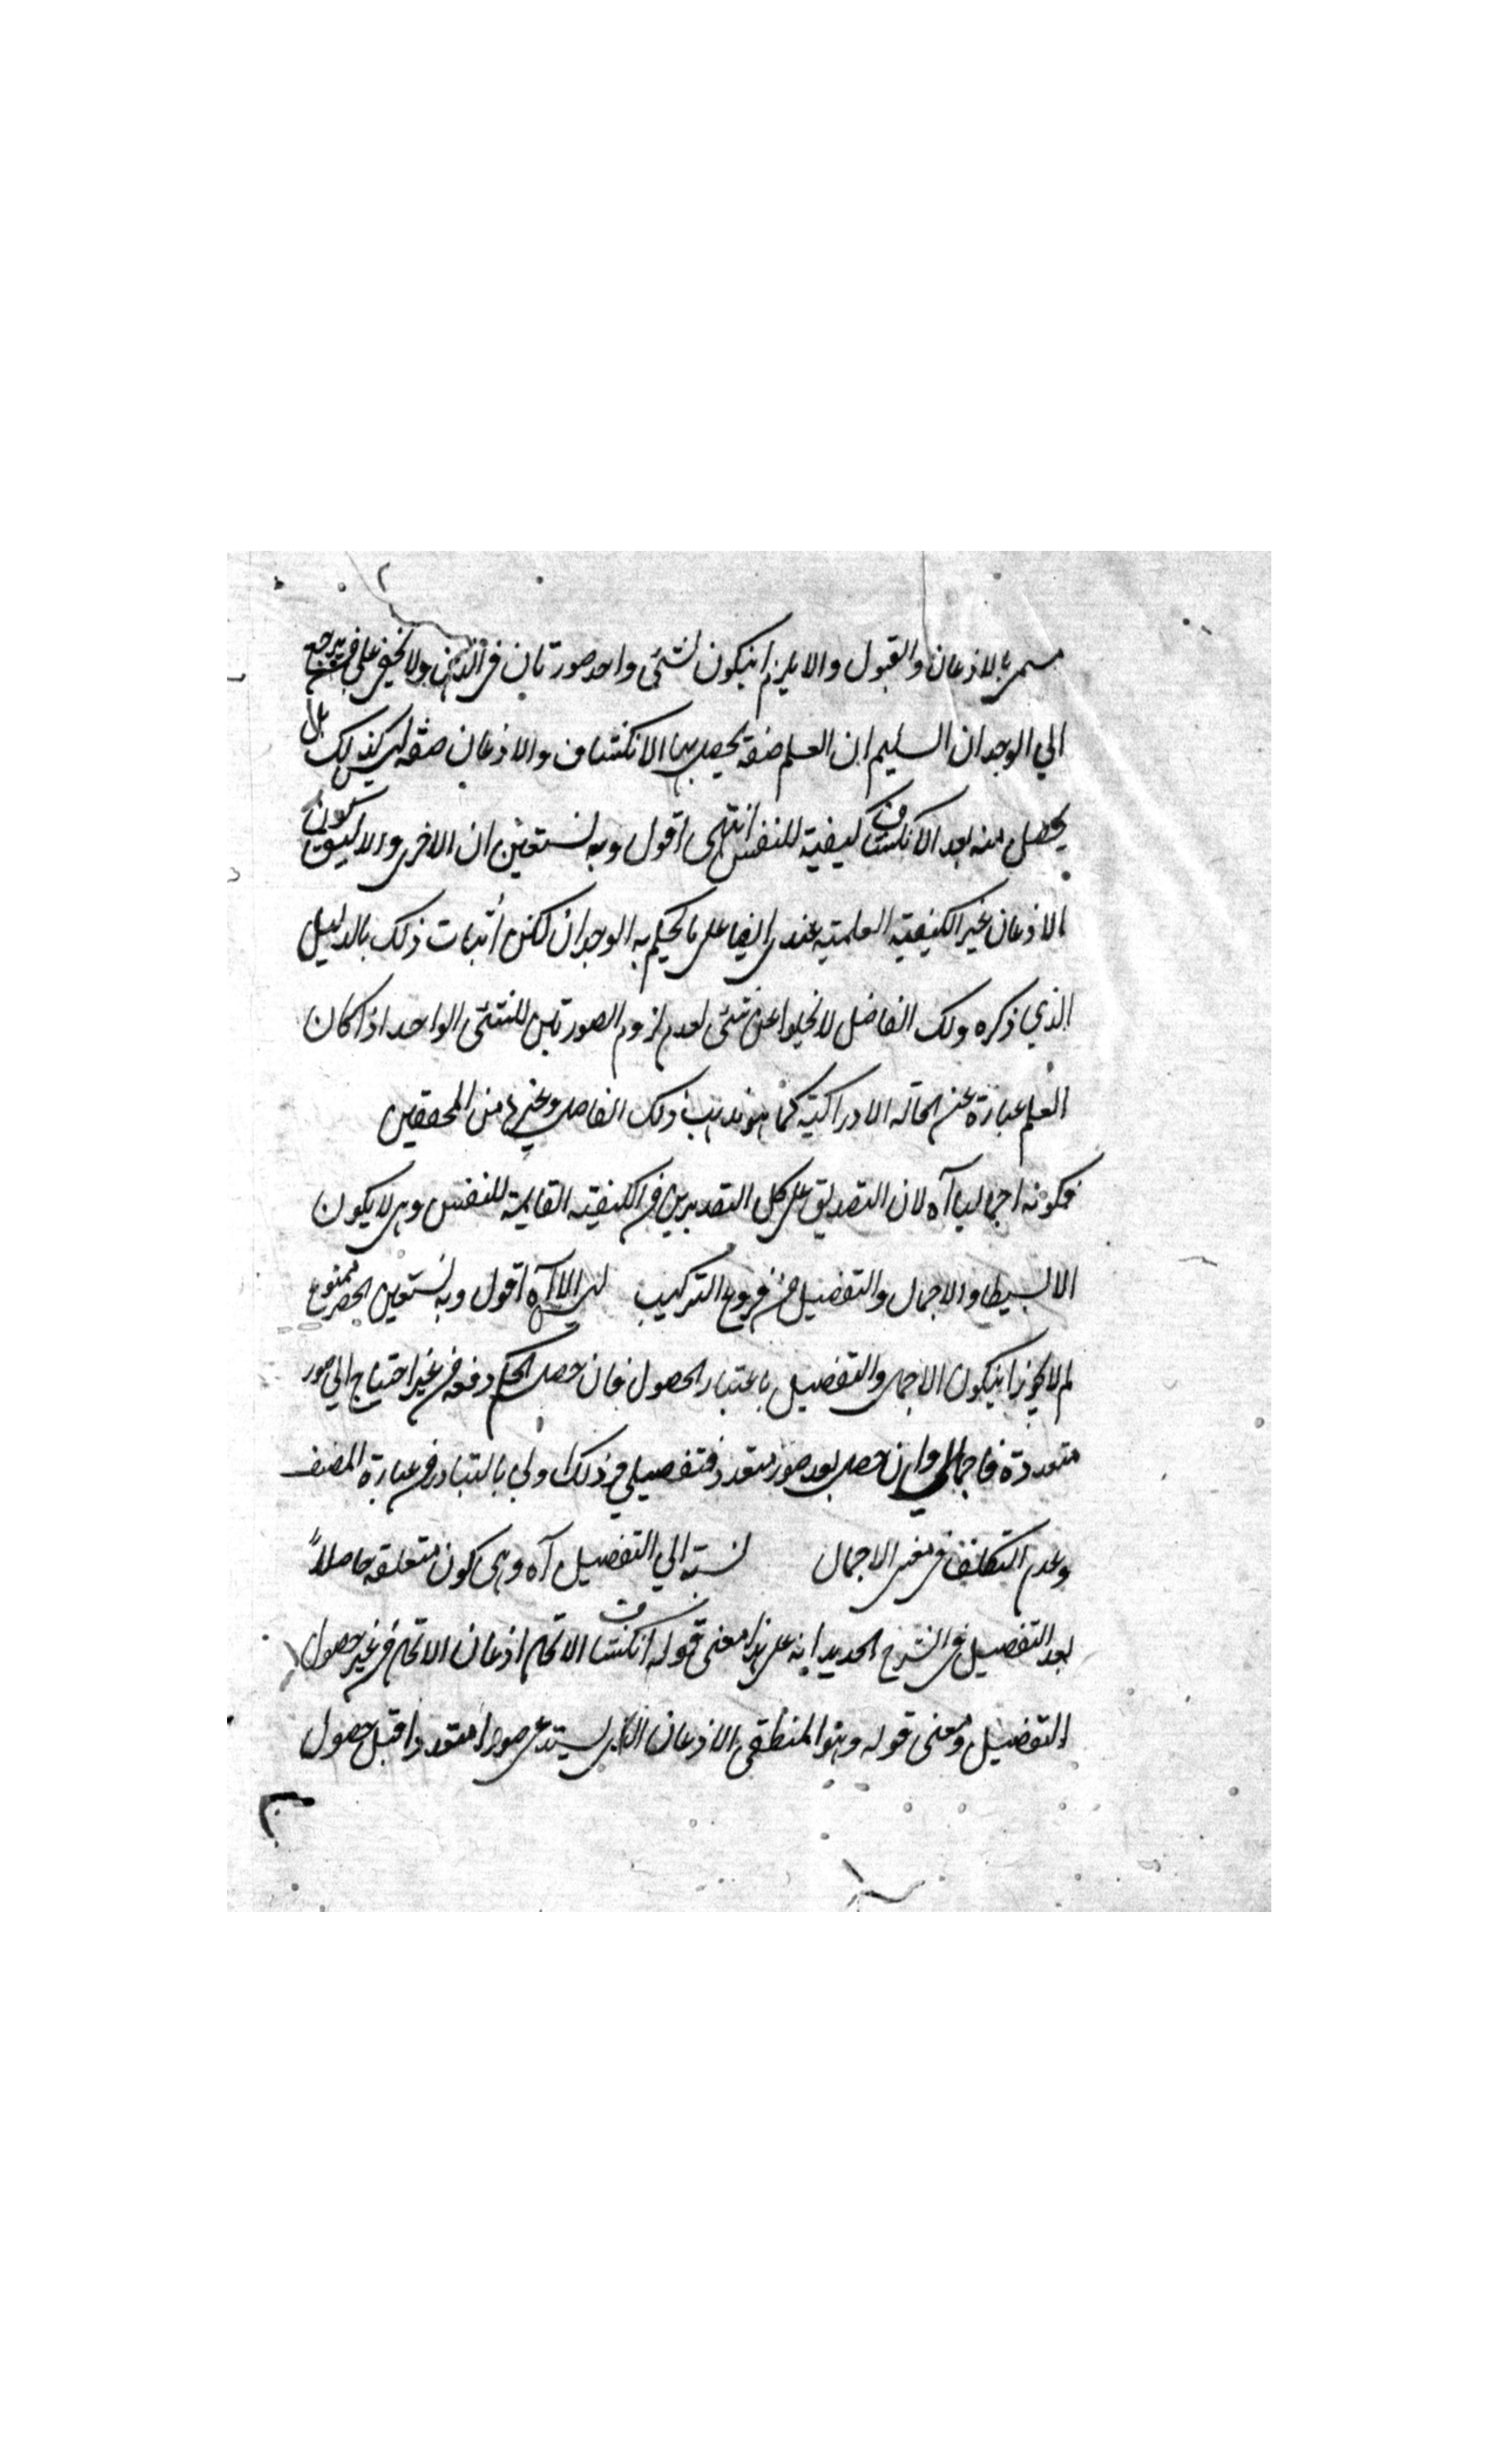 مسمى بالاذعان والقبول والا يلزم انيكون لشئ واحد صورتان في الذهن ولا يخفى على من يرجع
الي الوجدان السليم ان العلم صفة يحصل بها الانكشاف والاذعان صفة ليس كذلك بل
يحصل منه بعد الانكشاف كيفية للنفس انتهى اقول وبه نستعين ان الاخرى والاليق بكون
الاذعان غير الكيفية العلمية عندي ايضا على ما يحكم به الوجدان لكن اثبات ذلك بالدليل
الذي ذكره ذلك الفاضل لا يخلوا عن شئ لعدم لزوم الصورتين للشئ الواحد اذا كان
العلم عبارة عن الحالة الادراكية كما هو مذهب ذلك الفاضل وغيره من المحققين
فكونه اجماليا آه لان التصديق على كل التقديرين من الكيفية القايمة للنفس وهي لا يكون
الا بسيطا والاجمال والتفصيل من فروع التركيب ليس الا آه اقول وبه نستعين الحصر ممنوع
لم لا يجوز انيكون الاجمال والتفصيل باعتبار الحصول فان حصل الحكم دفعة من غير احتياج الي صور
متعددة فاجمالي وان حصل بعد صور متعددة فتفصيلي وذلك اولي بالتبادر من عبارة المصنف
وعدم التكلف في معنى الاجمال نسبة الي التفصيل آه وهي كون متعلقه حاصلاً
بعد التفصيل في الشرح الجديد انه على هذا معنى قوله انكشاف الاتحاد اذعان الاتحاد من غير حصول
التفصيل ومعنى قوله وهو المنطقي الاذعان الذي يستدعي صورا متعددا قبل حصول